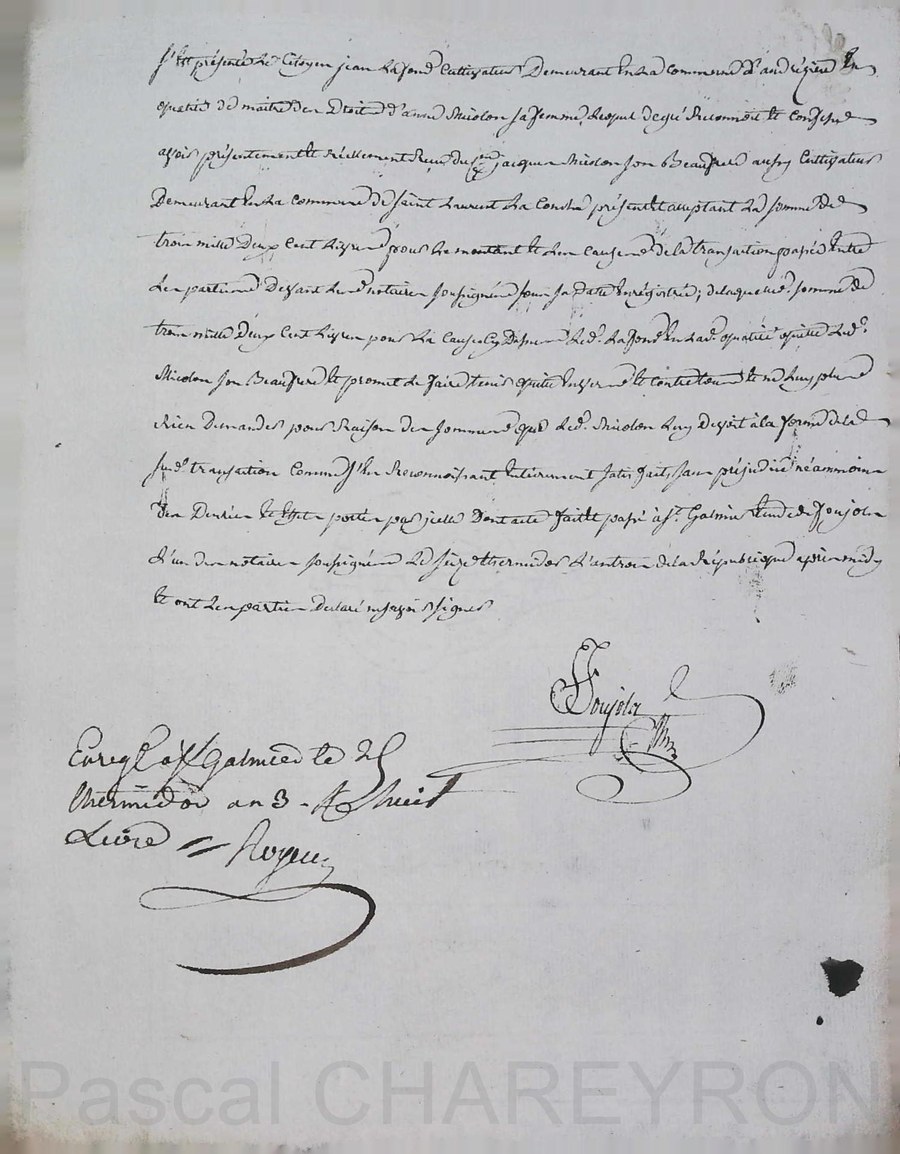 S'est présenté le Citoyen jean Lafond Cultivateur Demeurant En La commune d'andrézieu En
qualité de maitre des Droits d'anne Nicolon sa femme, Lequel de gré Reconnoit et confesse
avoir présentement et réellement Reçu du Cen jacques Nicolon son Beaufrere aussy Cultivateur
Demeurant En La commune de Saint Laurent La Conche présent et acceptant La somme de
trois mille Deux Cent Livres pour Le montant et Les causes de la transaction passée Entre
Les parties Devant Le notaire soussigné sous sa Date Enregistrée; de laquelle somme de
trois mille Deux Cent Livres pour La Cause Cy Dessus Led. Lafond En lad. qualité quitte Led.
Nicolon son Beaufrere et promet Le faire tenir quitte Envers et contre tous et ne Luy plus
Rien Demander pour Raison des sommes que Led. Nicolon Luy Devoit à la forme de la
susd. transaction Comme s'En Reconnoissant Entierement satisfait, sans préjudice néammoins
Des Denrées et Effets portés par jcelle Dont acte fait et passé à St. Galmier Etude de Poujola
L'un des notaires soussignés Le seize thermidor L'an trois de la République après midy
Et ont Les parties Declaré ne savoir signer
Poujola
Nre
Enregé à St Galmier le 25
thermidor an 3 - R huit
Livres = Royer
Pascal CHAREYRON